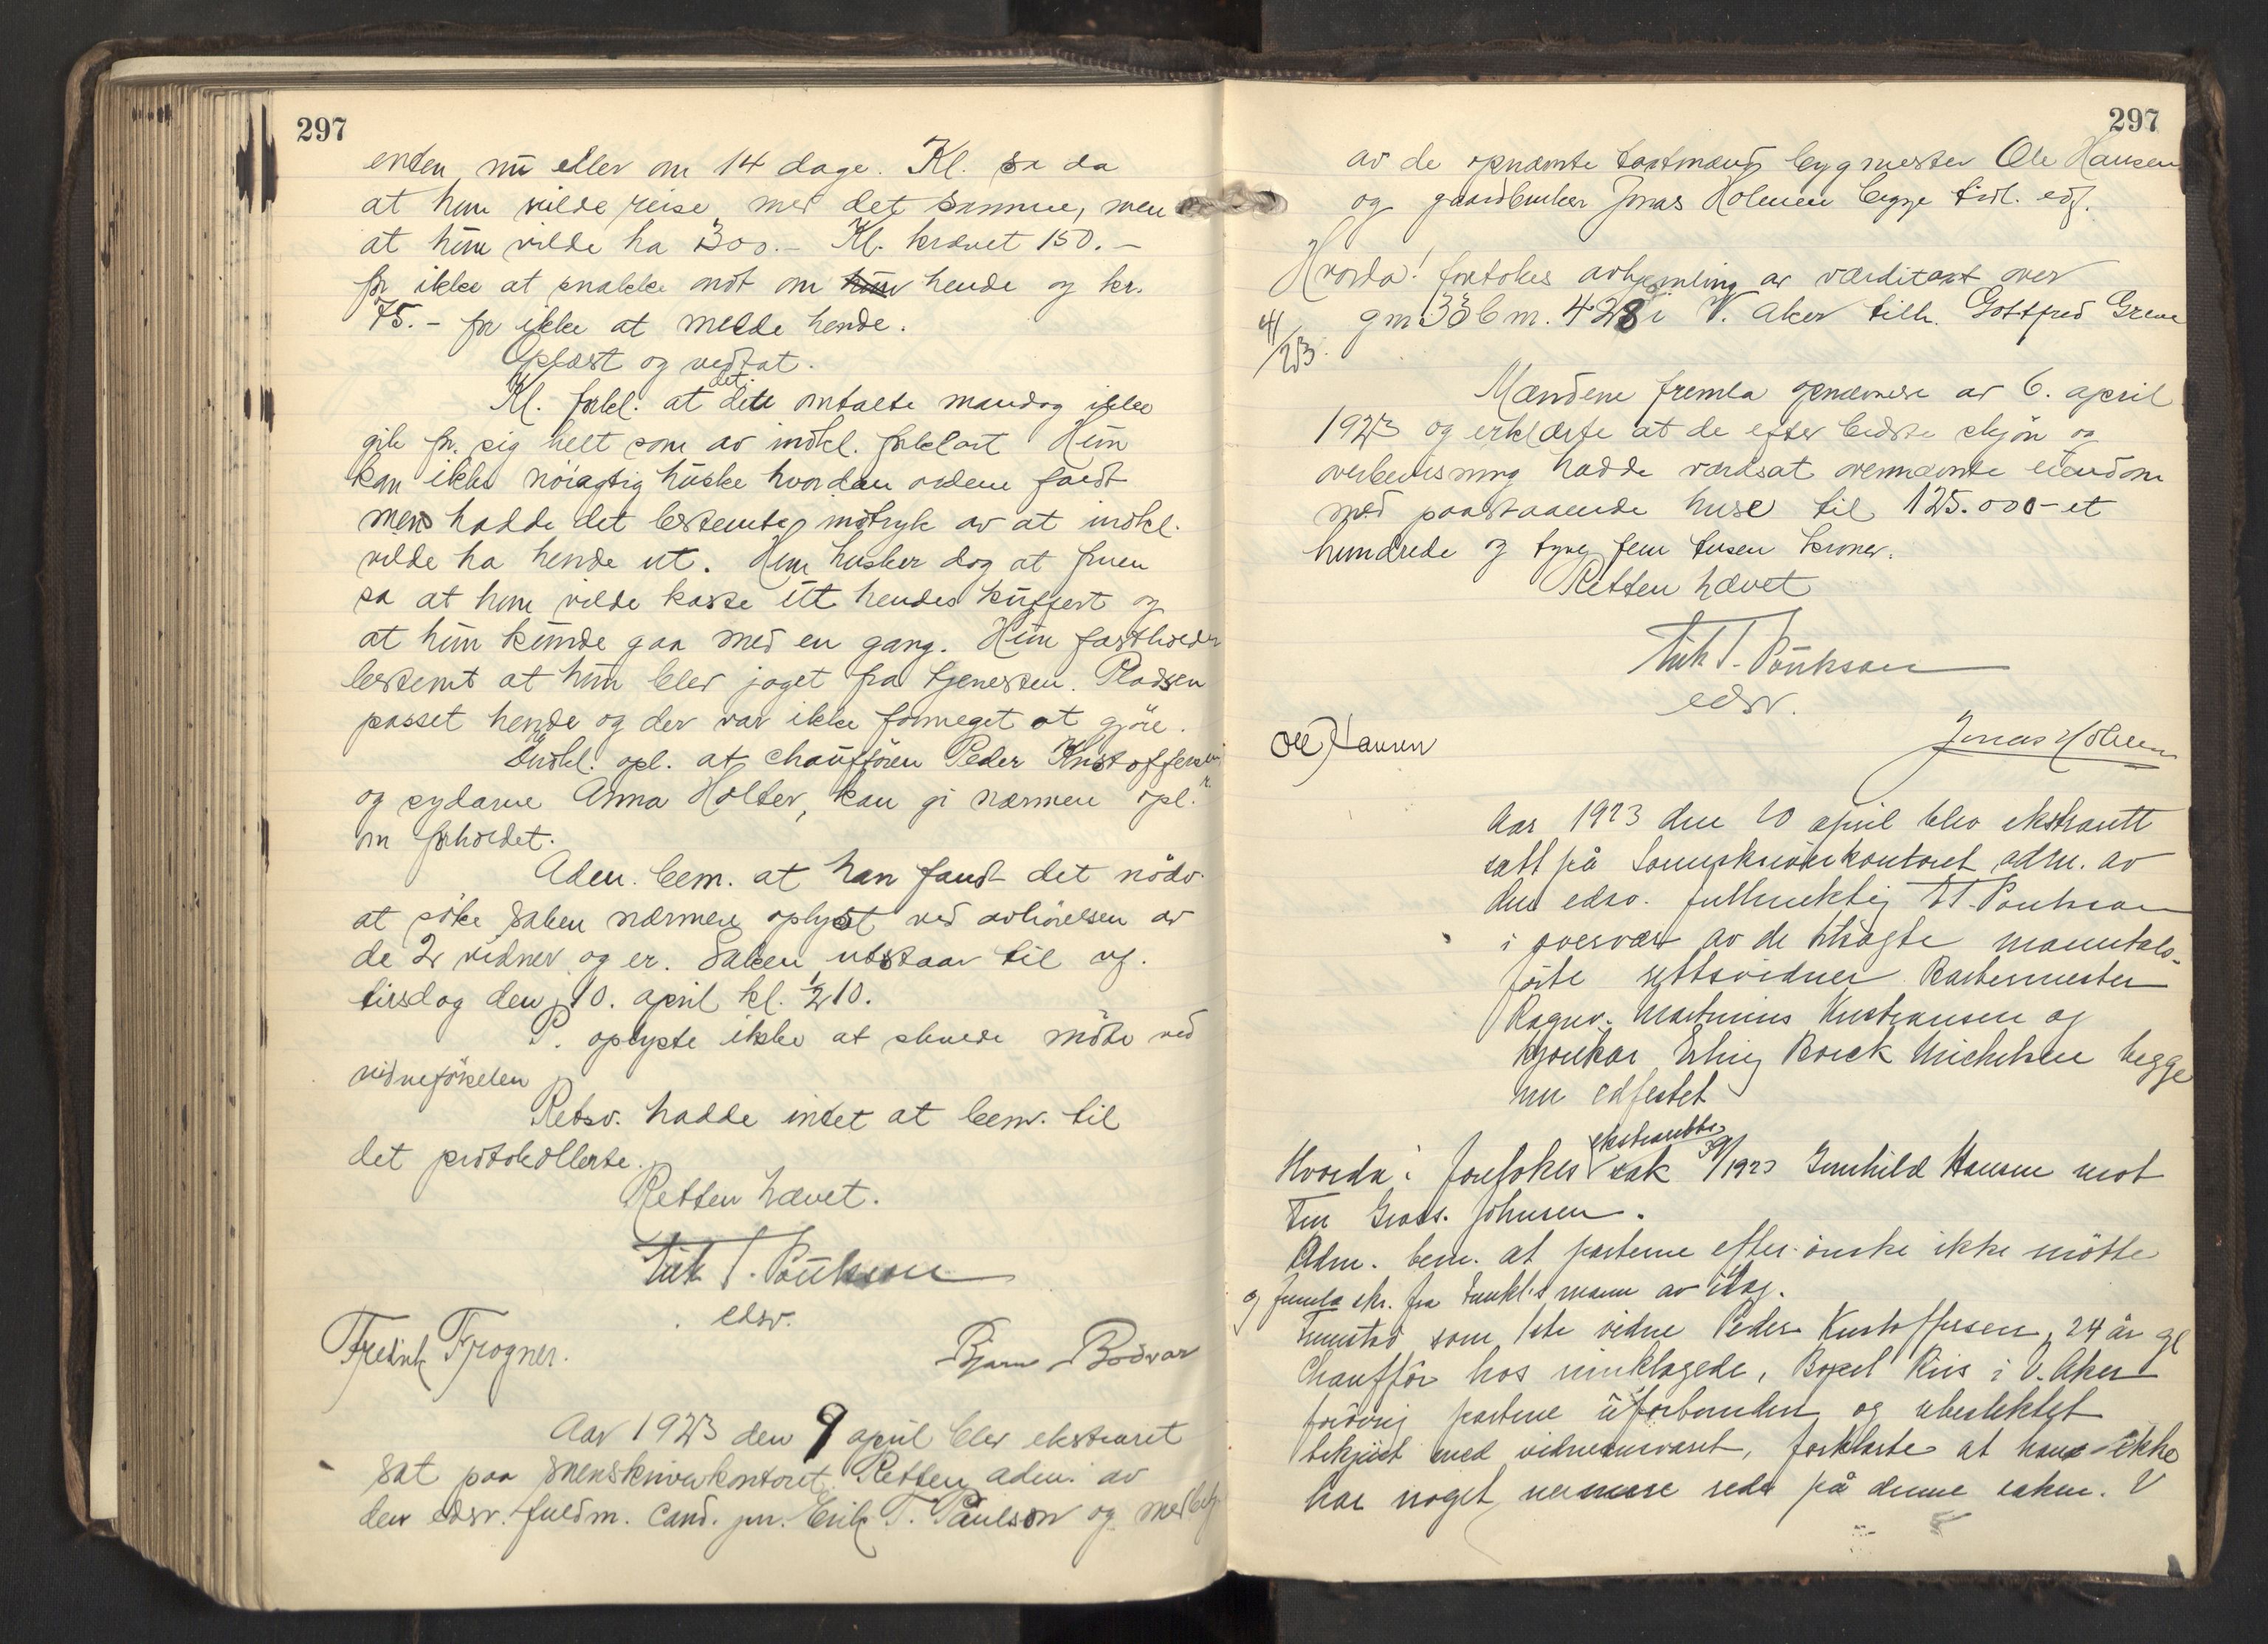 297
enten nu eller om 14 dage. Kl. sa da
at hun vilde reise med det samme, men
at hun vilde ha 300.- Kl. krævet 150.-
for ikke at snakke ondt om hun hende og kr.
75.- for ikke at melde hende.
Oplæst og vedtat.
Kl. forkl. at det dette omtalte mandag ikke
gik for sig helt som av indkl. forklart Hun
kan ikke nöiagtig huske hvordan ordene faldt
men hadde det bestemte indtryk av at indkl.
vilde ha hende ut. Hun husker dog at fruen
sa at hun vilde kaste ut hendes kuffert og
at hun kunde gaa med en gang. Hun fastholder
bestemt at hun blev jaget fra tjenesten. Pladsen
passet hende og der var ikke formeget at gjöre.
Indkl. opl. at chauffören Peder Kristoffersen
og sydame Anna Holter, kan gi nærmere opl.
om forholdet.
Adm. bem. at han fandt det nödv.
at söke saken nærmere oplyst ved avhörelsen av
de 2 vidner og er. Saken utstaar til
tirsdag den 10. april kl. ½10.
P. oplyste ikke at skulde möte ved
vidneförselen
Retsv. hadde intet at bem. til
det protokollerte.
Retten hævet.
Erik T. Poulsson
edsv.
Fredrik Frogner.
Bjarne Bödvar
Aar 1923 den 9 april blev ekstraret
sat paa sorenskriverkontoret. Retten adm. av
den edsv. fuldm. cand. jur. Erik T. Paulson og
297
av de opnævnte takstmænd bygmester Ole Hansen
og gaardbruker Jonas Holmen begge tidl. edf.
Hvorda! foretokes avhjemling av værditakst over
gnr 33 bnr. 428 i V. Aker tilh. Gottfred Greve
4/
/23.
Mændene fremla opnævnelse av 6. april
1923 og erklærte at de efter bedste skjön og
overbevisning hadde værdsat ovennævnte eiendom
med paastaaende huse til 125.000- et
hundrede og tyve fem tusen kroner.
Retten hævet
Erik T. Poulsson
edsv.
Ole Hansen
Jonas Holmen
Aar 1923 den 10 april blev ekstrarett
satt på Sorenskriverkontoret adm. av
den edsv. fullmektig E T. Poulsson
i overvær av de tilsagte manntals-
förte rettsvidner Barbermester
Ragnv. Martinius Kristiansen og
Erling Borck Michelsen begge
nu edfestet
Hvorda: Foretokes ekstraretts sak 39/1923 Gunhild Hansen mot
Fru Johnsen.
Adm. bem. at parterne efter önske ikke mötte
og fremla skr. fra innkl.s mann av idag.
Fremstod som 1ste vidne Peder Kristoffersen, 24 år gl
Chaufför hos innklagede, Bopel Riis i V. Aker
forövrig partene uforbunden og ubeslektet
bekjent med vidneansvaret, forklarte at han ikke
har noget nermere rede på denne saken. V